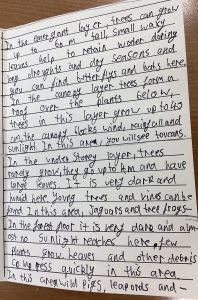 In the emergent layer, trees can grow
up to 60 m tall, small waxy
leaves help to retain water during
long droughts and dry seasons and
you can find butterflys and bats here.
In the canopy layer trees form a
roof over the plants below,
trees in this layer grow up to 45
m, the canopy blocks wind, rainfall and
sunlight. In this area, you will see toucans.
In the under storey layer, trees
rarely grow, they go up to m and have
large leaves. It is very dark and
humid here. Young trees and vines can be
found. In this area, Jaguars and tree frogs-
In the forest floor it is very dark and alm-
ost no sunlight reaches here, few
Plants grow. Leaves and other debris
compress quickly in this area
In this area wild Pigs, leapords and-